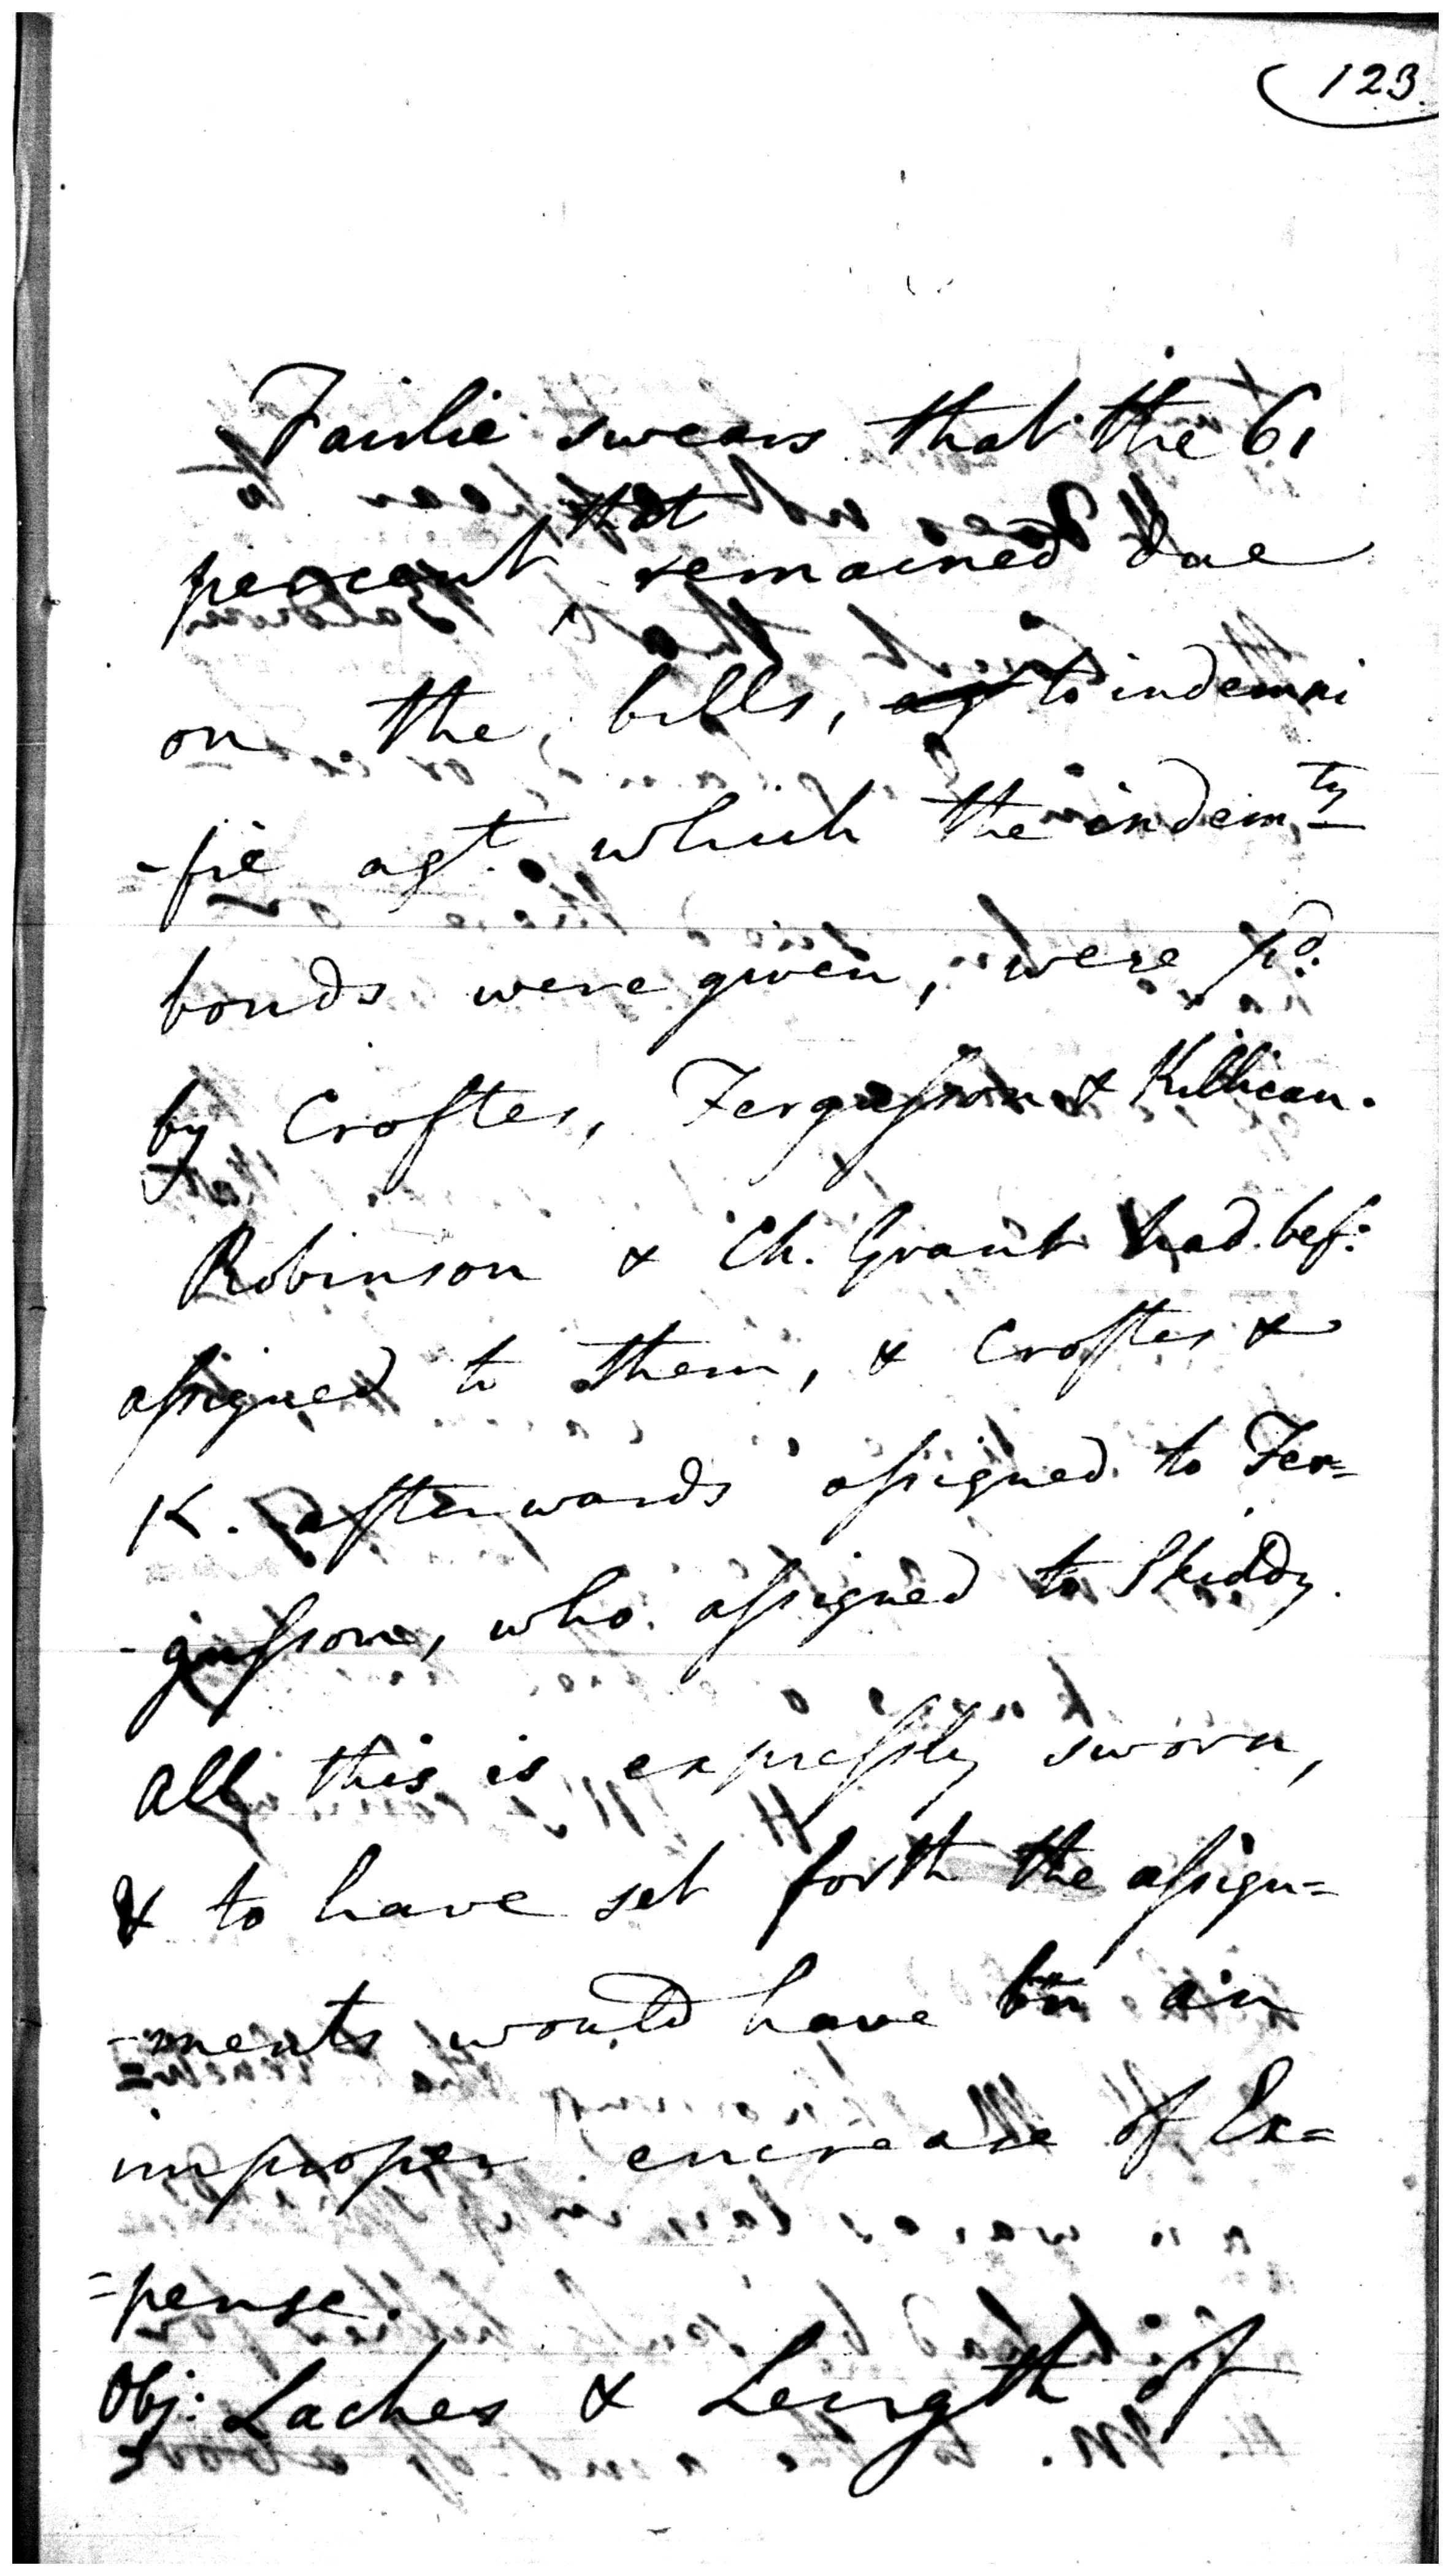 123
Fairlie swears that the 61
percent that remained due
on the bills, agt to indemni
-fie agt. which the indemty
bonds were given, were pd.
by Croftes, Fergusson & Killican.
Robinson & Ch. Grant had bef:
assigned to them, & Croftes &
K. afterwards assigned to Fer=
-gusson, who assigned to Skiddy.
All this is expressly sworn,
& to have set forth the assign=
-ments would have bn an
improper encrease of Ex=
=pense.
Obj: Laches & Length of